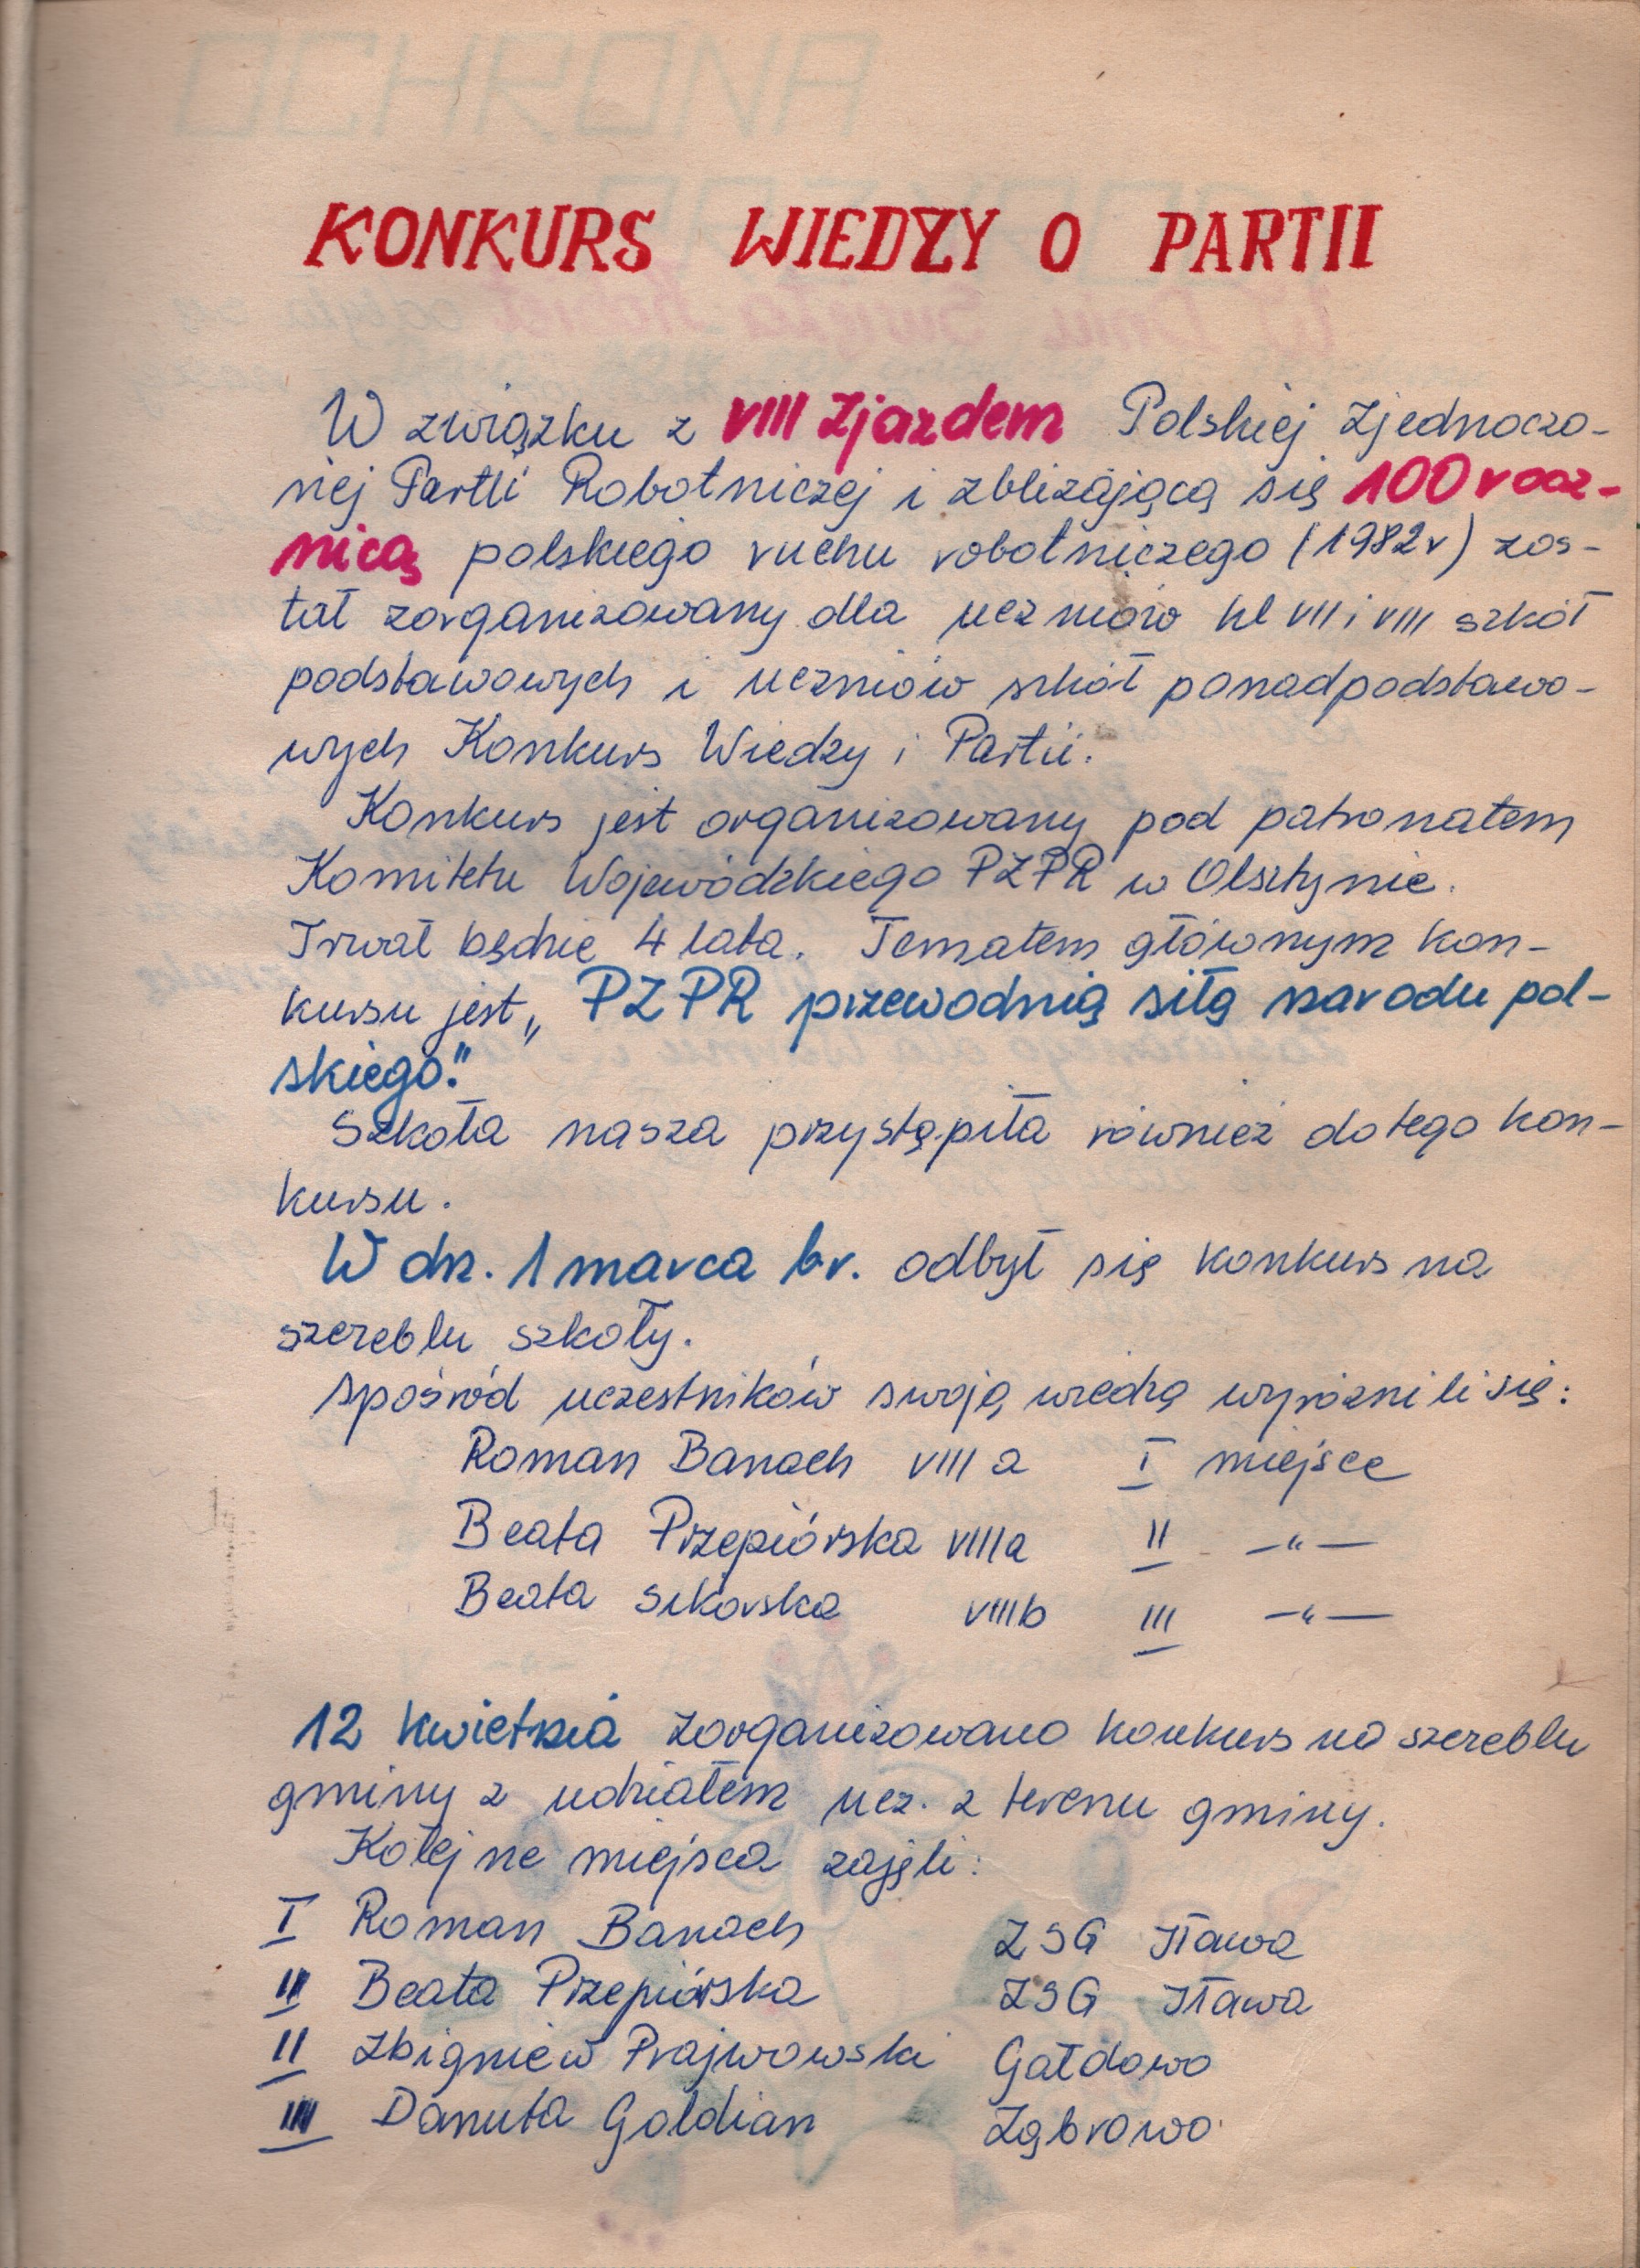 KONKURS WIEDZY O PARTII
W związku z VIII Zjazdem Polskiej Zjednoczo-
nej Partii Robotniczej i zbliżającą się 100 rocz-
nicą polskiego ruchu robotniczego (1982r) zos-
tał zorganizowany dla uczniów kl VII i VIII szkół
podstawowych i uczniów szkół ponadpodstawo-
wych Konkurs Wiedzy i Partii.
Konkurs jest organizowany pod patronatem
Komitetu Wojewódzkiego PZPR w Olsztynie.
Trwał będzie 4 lata. Tematem głównym kon-
kursu jest „PZPR przewodnią siłą narodu pol-
skiego."
Szkoła nasza przystąpiła również do tego kon-
kursu.
W dn. 1 marca br. odbył się konkurs na
szczeblu szkoły.
Spośród uczestników swoją wiedzą wyróżnili się:
Roman Banach VIII a I miejsce
Beata Przepiórska VIII a II -"-
Beata Sikorska VIII b III -"-
12 kwietnia zorganizowano konkurs na szczeblu
gminy z udziałem ucz. z terenu gminy.
Kolejne miejsca zajęli:
I Roman Banach ZSG Iława
II Beata Przepiórska ZSG Iława
II Zbigniew Prajwowski Gałdowo
III Danuta Goldian Ząbrowo